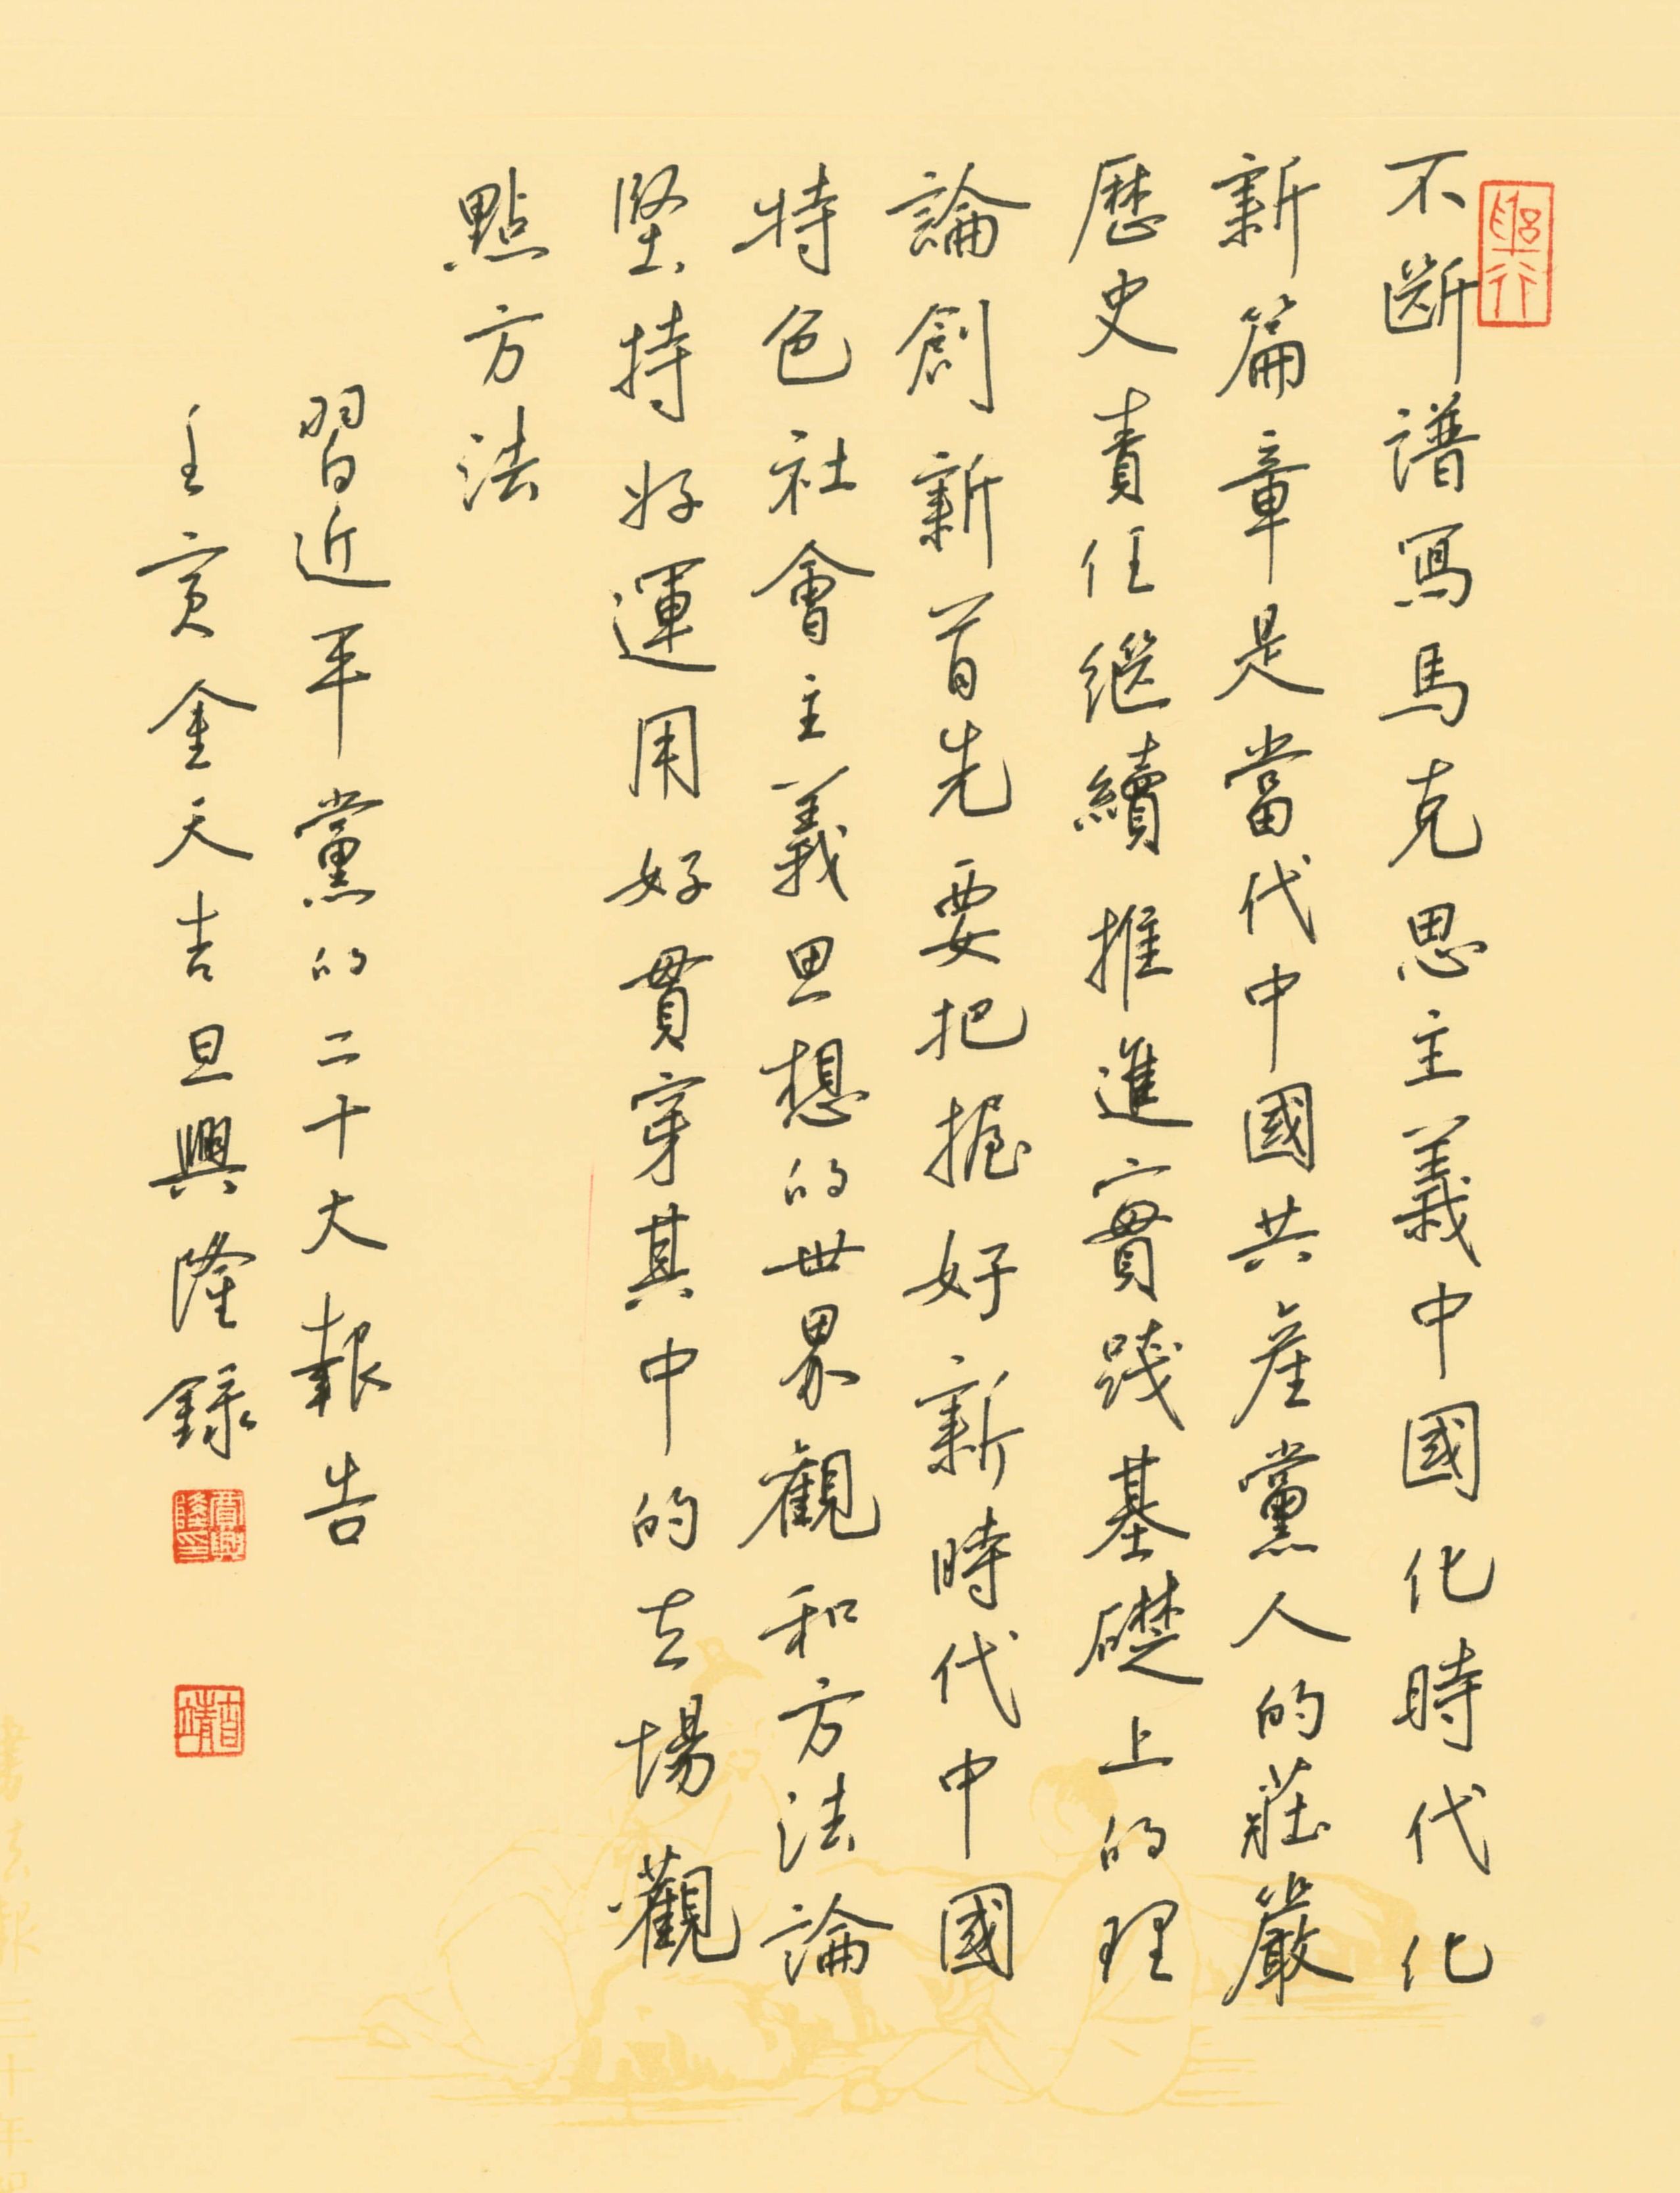 不斷譜寫馬克思主義中國化時代化
新篇章是當代中國共產黨人的莊嚴
歷史責任继續推進實踐基礎上的理
論創新首先要把握好新時代中國
特色社會主義思想的世界觀和方法論
堅持好運用好貫穿其中的立場觀
點方法
習近平黨的二十大報告
壬寅金天吉旦興隆錄
賈興隆印